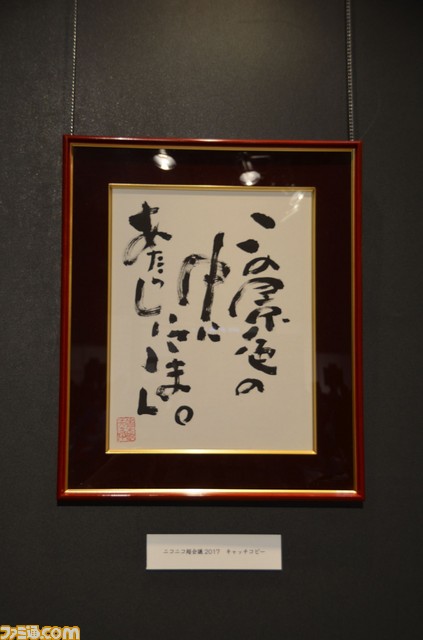 この景色の
中に
あたらしい
ニコニコ超会議2017 キャッチコピー
ファミ通.com